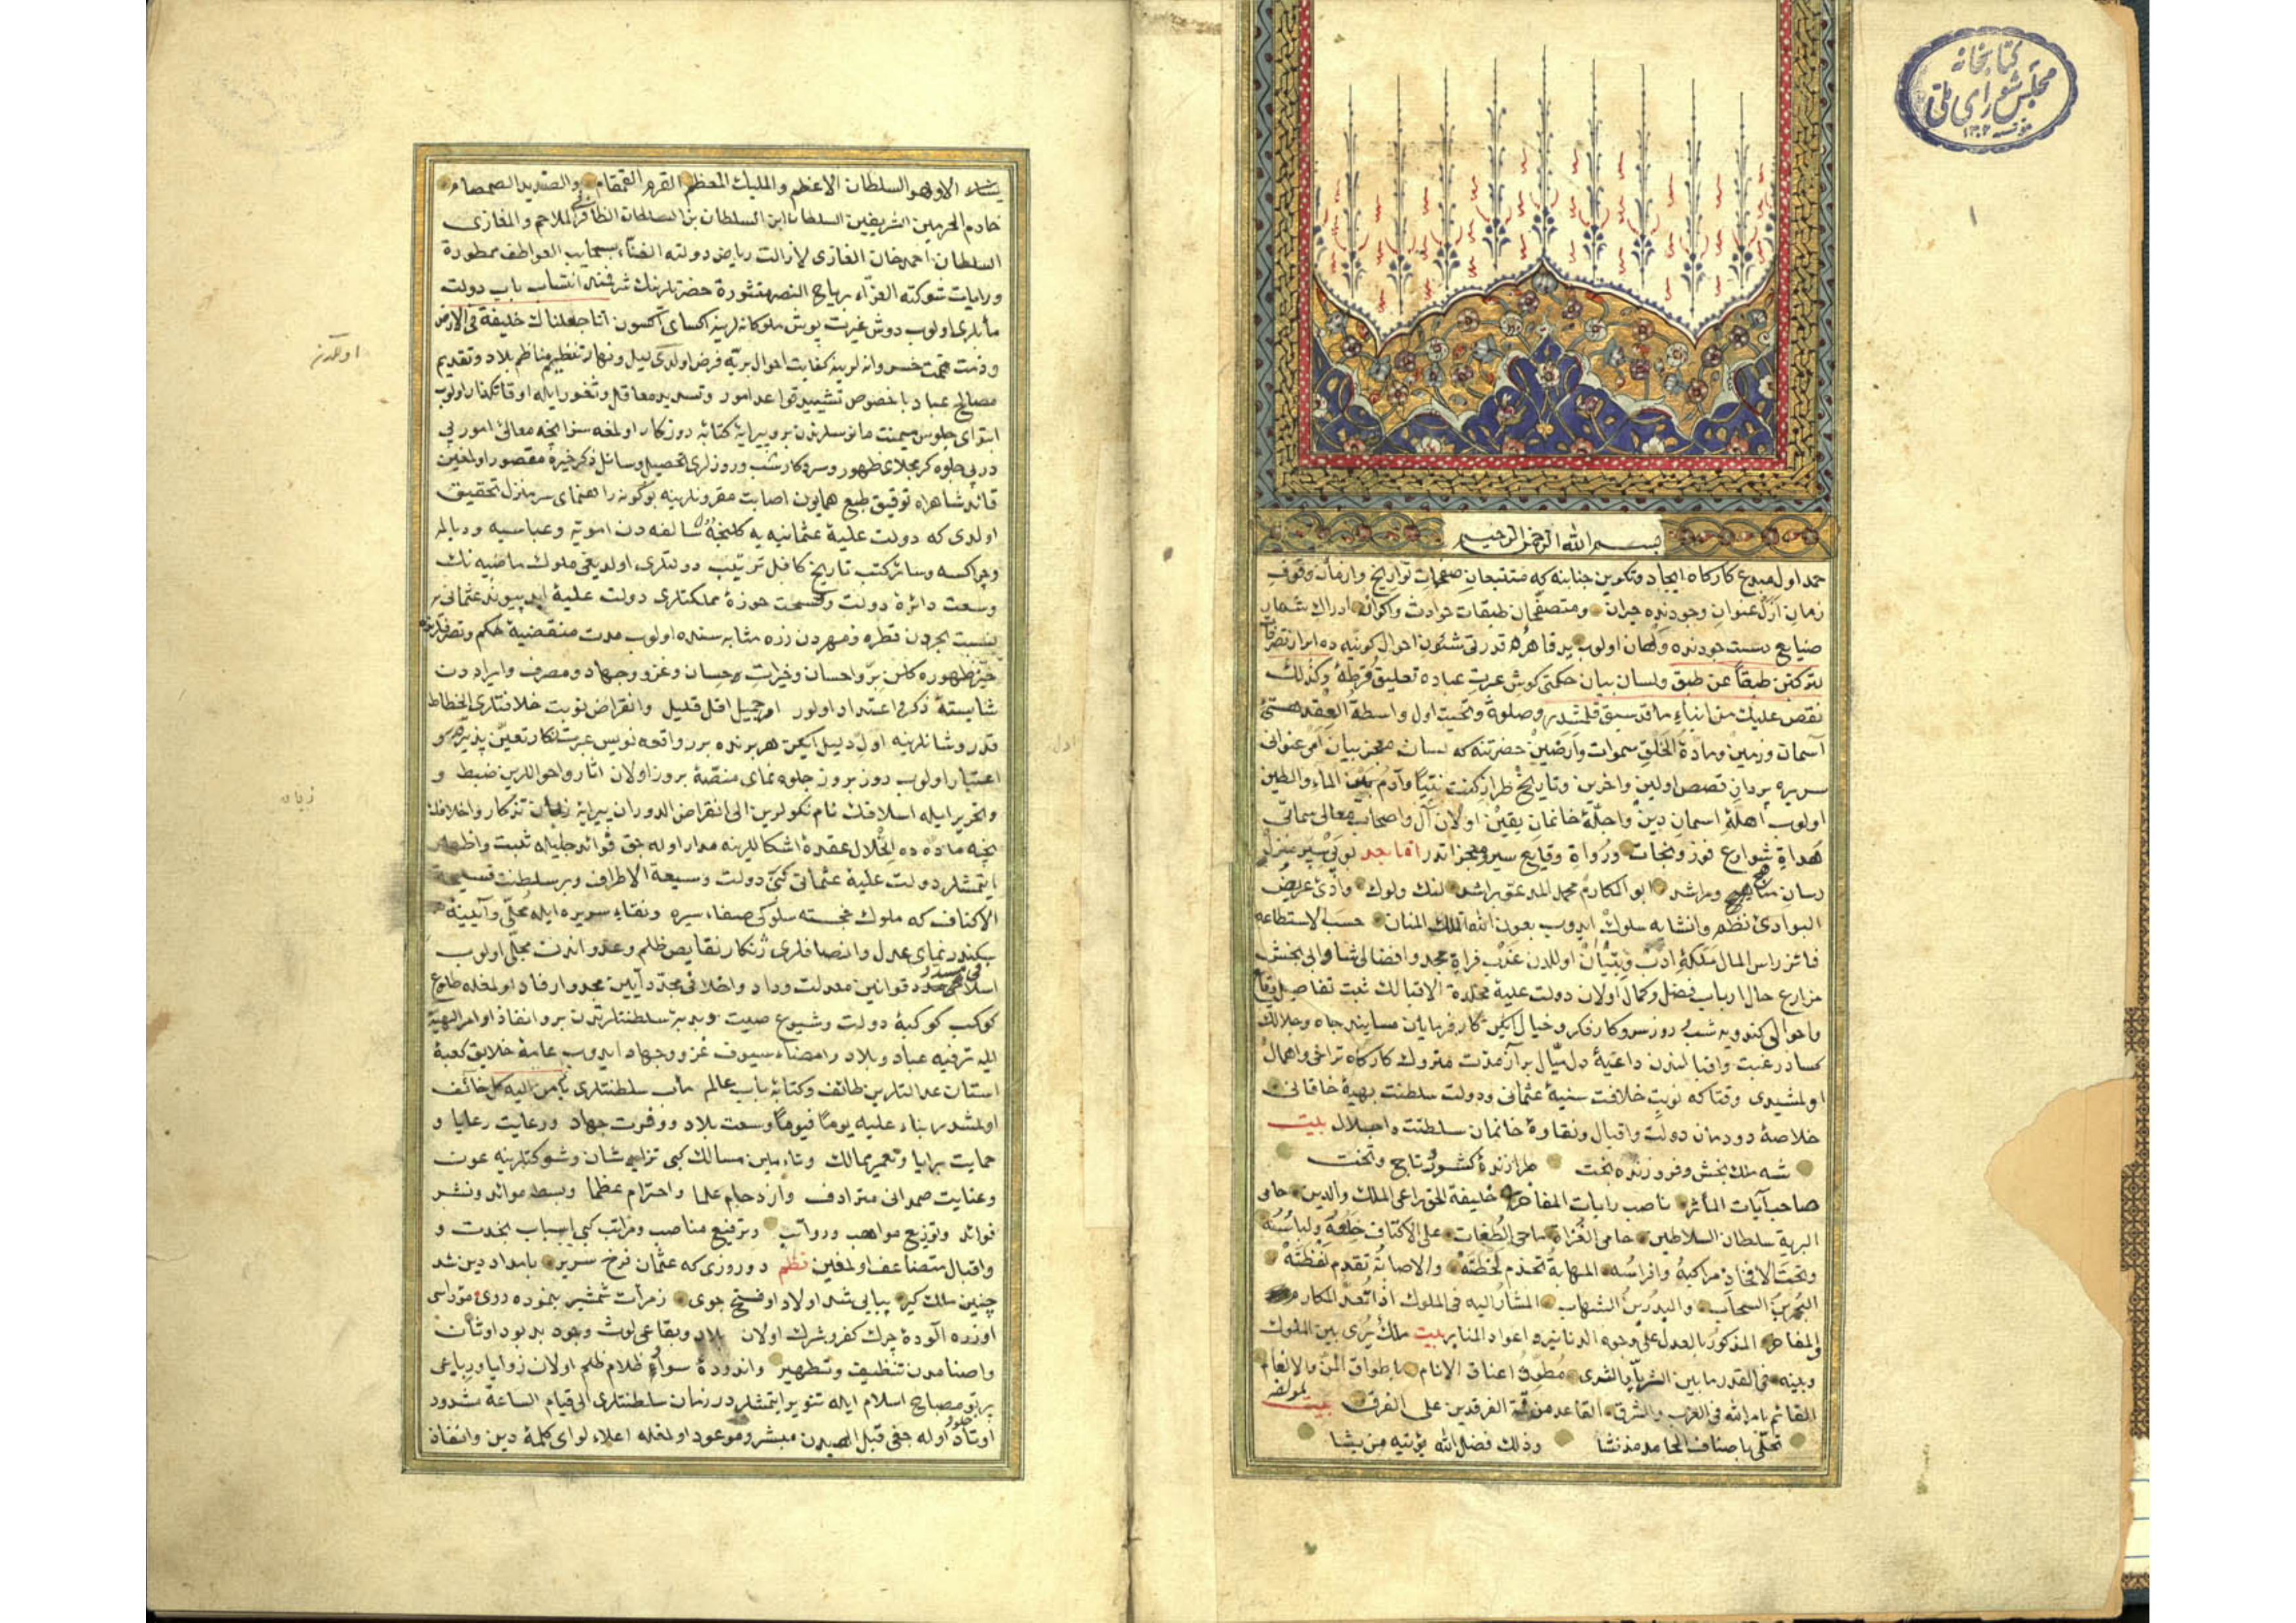 کتابخانه
مجلس شورای ملی
مؤسسه ۱۳۰۲
۱
بسم الله الرحمن الرحیم
حمد اول مبدع کارکاه ایجاد وتکوین جنابنه که متتبعان صفحات تواریخ وازمان وقوف
زمان ازل عنوان وجودنده حیران ومتصفحان طبقات حوادث واکوان ادراك شمار
صنایع دست جودنده ولهان اولوب ید قاهره قدرتی شئون احوال کونیه ده ابراز تصرفات
لترکبن طبقاً عن طبق ولسان بیان حکمتی کوش عبرت عباده تعلیق قرطۀ وکذلك
نقص علیك من انباء ما قد سبق قلمشدر وصلوة وتحیت اول واسطة العقد هستئ
آسمان وزمین ومادۀ الخلق سموات وارضین حضرتنه که لسان معجز بیان امر عنوانی
سریره پردان قصص اولین واخرین وتاریخ طراز کنت نبیاً وآدم بین الماء والطین
اولوب اهلۀ اسمان دین واجلۀ خاندان یقین اولان آل واصحاب معالی سماتی
هداة شوارع فوز ونجات ورواة وقایع سیر ومعجزاتدر اما بعد بوبی سیر منزل
رسان مناهج ومراشد ابو المکارم محمد المدعو براشد لنك ولوك وادئ عریض
البوادئ نظم وانشایه سلوك ایدوب بعون الله الملك المنان حسب الاستطاعه
فائز راس المال ملکۀ ادب وتبیان اولدن عذب فرات مجد وافضالی شادابی بخش
مزارع حال ارباب فضل وکمال اولان دولت علیۀ مخلدة الاقبالك ثبت تفاصیل وقایع
واحوالی کندویه شب وروز سروکار فکر وخیال ایکن کارفرمایان مسایند جاه وجلالك
کساد رغبت واقبالندن داعیۀ دل میال بر آز مدت متروك کارکاه تراخی واهمال
اولمشیدی وقتاکه نوبت خلافت سنیۀ عثمانی ودولت سلطنت بهیۀ خاقانی
خلاصۀ دودمان دولت واقبال ونقاوۀ خاندان سلطنت واجلال بیت
شه ملك بخش وفروزنده بخت طرازندۀ کشور وتاج وتخت
صاحب آیات المآثر ناصب رایات المفاخر خلیفة الحق راعی الملك والدین حامی
البریة سلطان السلاطین حامی الغزاة ماحی الطغات علی الاکتاف خلعه ولباسه
وتحت الافخاذ مراکبه وافراسه المهابة تخدم لحظته والاصابة تقدم لفظته
البحر بین السحاب والبدر بین الشهاب المشار الیه فی الملوك اذا تعد المکارم
والمفاخر المذکور بالعدل علی وجوه الدنانیر واعواد المنابر بیت ملك یری بین الملوك
وبینه فی القدر ما بین الثریا والثری مطوق اعناق الانام باطواق المن والانعام
القائم بامر الله فی الغرب والشرق القاعد من قمة الفرقدین علی الفرق بیت لمؤلفه
تحلی باصناف المحامد مذ نشا وذلك فضل الله یؤتیه من یشا
الاوهو السلطان الاعظم والملیك المعظم القرم القمقام والصندید الصمصام
خادم الحرمین الشریفین السلطان ابن السلطان بن السلطان الظافر فی الملاحم والمغازی
السلطان احمد خان الغازی لازالت ریاض دولته الغناء بسحایب العواطف ممطورة
ورایات شوکته الغراء بریاح النصر منشورة حضرتلرینك شرفنه انتساب باب دولت
مأبلری اولوب دوش غیرت پوش ملوکانه لرینه اکسای اکسون انا جعلناك خلیفة فی الارض
وذمت همت خسروانه لرینه کفایت احوال بریه فرض اولدی لیل ونهار تنظیم مناظم بلاد وتقدیم
مصالح عباد باخصوص تشیید قواعد امور وتسدید معاقل وثغور ایله اوقاتکذار اولوب
ابتدای جلوس میمنت مانوسلرندن برو پیرایۀ کتابۀ روزکار اولمغه سزا نیجه معالئ امور پی
در پی جلوه کر مجلای ظهور وسروکار شب وروزلری تحصیل وسائل ذکر خیره مقصور اولمغین
قائد شاهراه توفیق طبع همایون اصابت مقرونلرینه بوکونه راهنمای سرمنزل تحقیق
اولدی که دولت علیۀ عثمانیه یه کلنجه سالفه دن امویه وعباسیه ودیالمه
وچراکسه وسائر کتب تاریخ کافل ترتیب دولتلری اولدیغی ملوك ماضیه نك
وسعت دائرۀ دولت وفسحت حوزۀ مملکتلری دولت علیۀ ابد پیوند عثمانی یه
نسبت بحردن قطره ومهردن ذره مثابه سنده اولوب مدت منقضیۀ حکم وتصرفلرنده
حیز ظهوره کلن بر واحسان وخیرات حسان وغزو وجهاد ومصرف وایراددن
شایستۀ ذکر واعتداد اولور امر جمیل اقل قلیل وانقراض نوبت خلافتلری انحطاط
قدر وشانلرینه اول دلیل ایکن هر برنده برر واقعه نویس عبرتنکار تعین پذیر و
اعتبار اولوب روز بروز جلوه نمای منصۀ بروز اولان اثار واحواللرین ضبط و
وتحریر ایله اسلافك نام نکولرین الی انقراض الدوران پیرایۀ زبان تذکار واخلافك
نیجه ماده ده انحلال عقدۀ اشکاللرینه مدار اوله جق فوائد جلیله ثبت واظهار
ایتمشلر دولت علیۀ عثمانی کبی دولت وسیعة الاطراف وبر سلطنت فسیحة
الاکناف که ملوك خجسته سلوکی صفاء سیره ونقاء سریره ایله محلی وآیینۀ
سکندر نمای عدل وانصافلری ژنکار نقایص ظلم وعدواندن مجلی اولوب
قوانین معدلت وداد واخلافی مجدد آیین مجد وارفاد اولمغله طلوع
کوکب کوکبۀ دولت وشیوع صیت وبدبۀ سلطنتلرندن برو انفاذ اوامر الهیه
ایله ترفیه عباد وبلاد وامضاء سیوف غزو وجهاد ایدوب عامۀ خلایق کعبۀ
استان عدالتلرین طائف وکتابۀ باب عالم مأب سلطنتلری یأمن الیه کل خائف
اولمشدر بناء علیه یوماً فیوماً وسعت بلاد ووفرت جهاد ورعایت رعایا و
حمایت برایا وتعمیر ممالك وتامین مسالك کبی تزاید شان وشوکتلرینه عون
وعنایت صمدانی مترادف وازدحام علما واحترام عظما وبسط موائد ونشر
فوائد وتوزیع مواهب ورواتب وترفیع مناصب ومراتب کبی اسباب بخت و
واقبال متضاعف اولمغین نظم دو روزی که عثمان فرخ سریر بامداد دین شد
چنین ملك کیر بیایی شد اولاد او فتح جوی زمرآت شمشیر بنموده روی
اوزره آلودۀ چرك کفر وشرك اولان بلاد وبقاعی لوث وجود بدبود اوثان
واصنامدن تنظیف وتطهیر واندودۀ سواد ظلام ظلم اولان زوایا ورباعی
پرتو مصباح اسلام ایله تنویر ایتمشلردر زمان سلطنتلری الی قیام الساعة مشدود
اوتاد خلود اوله جغی قبل مبشر وموعود اولمغله اعلاء لوای کلمۀ دین وانفاذ
زبان